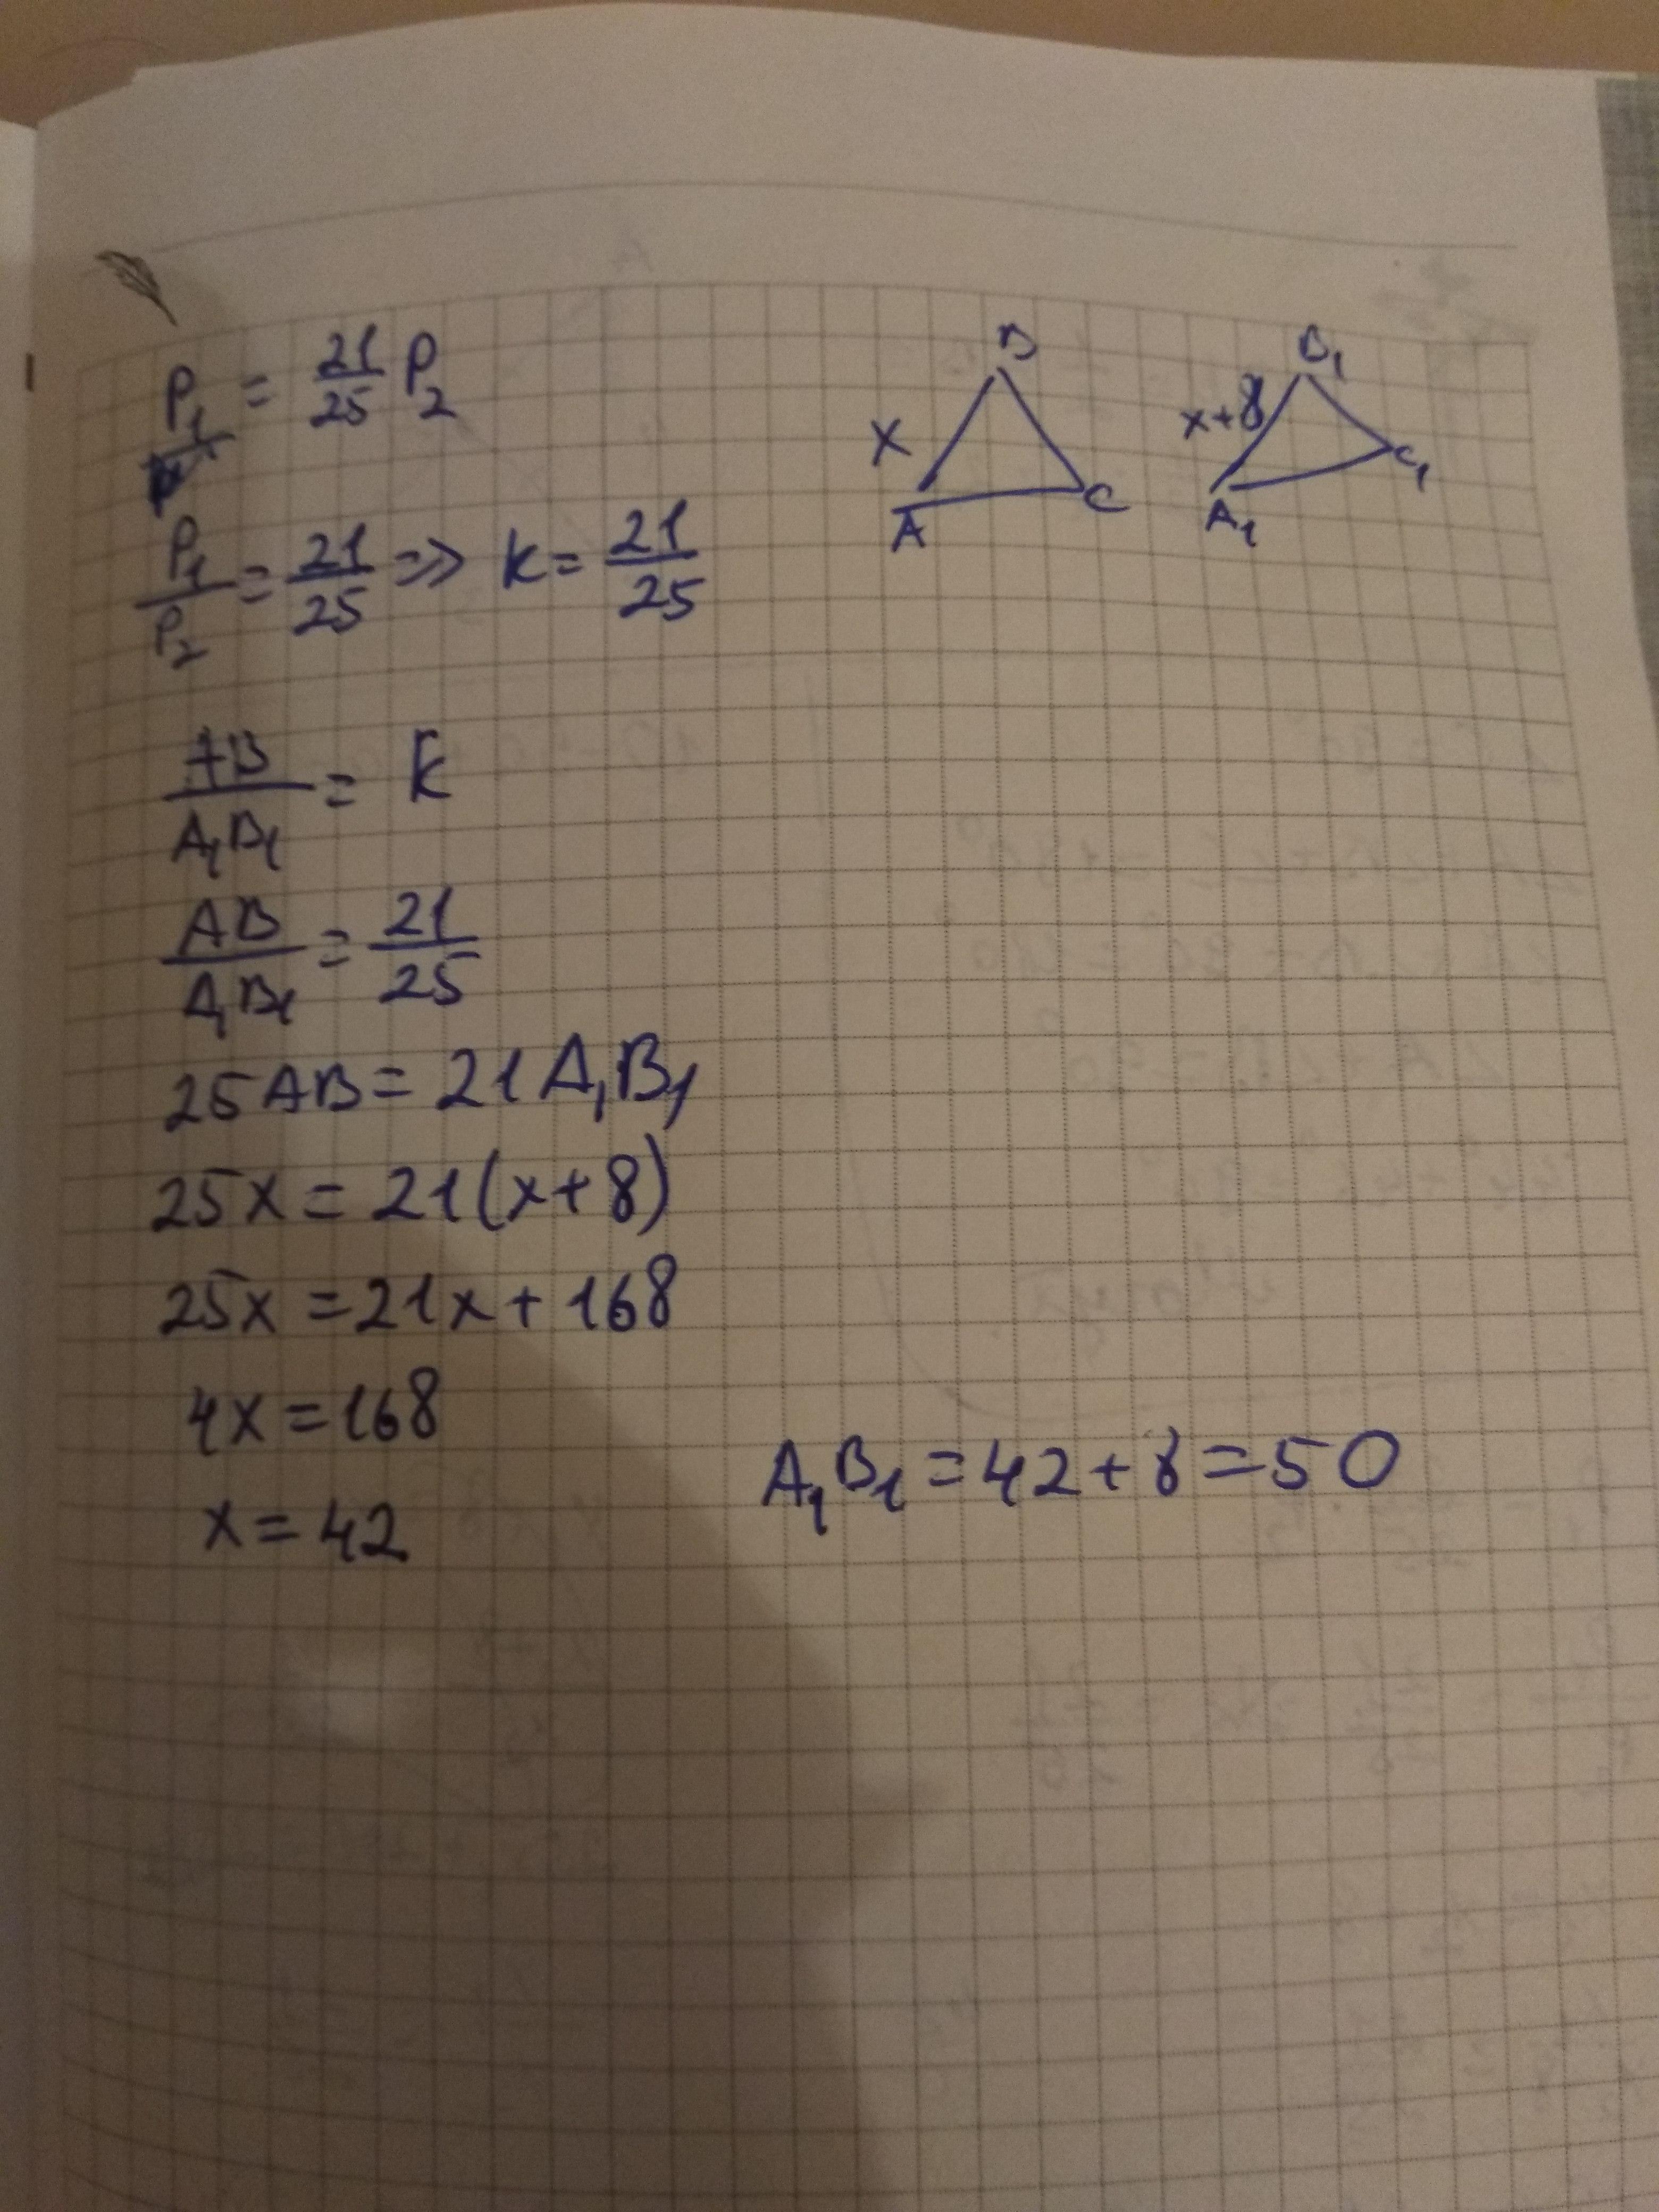 P₁ = 21/25 P₂
P₁/P₂ = 21/25 => k = 21/25
B
x
A
C
B₁
x+8
A₁
C₁
AB/A₁B₁ = k
AB/A₁B₁ = 21/25
25AB = 21A₁B₁
25x = 21(x+8)
25x = 21x + 168
4x = 168
x = 42
A₁B₁ = 42 + 8 = 50